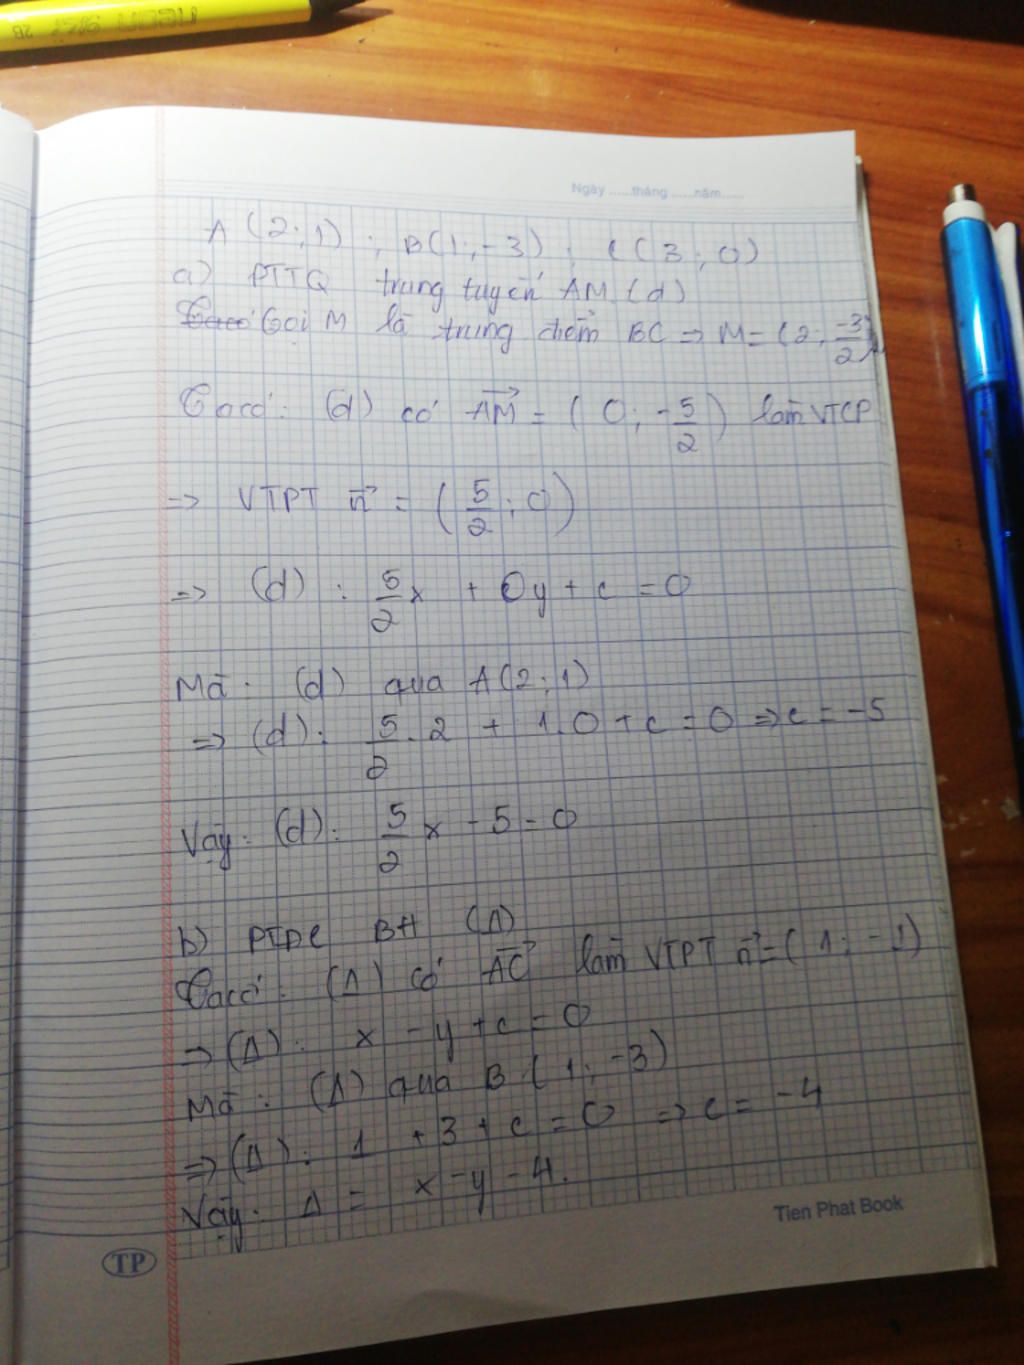 Ngày ......tháng ......năm......
A (2;1) ; B(1;-3) ; C(3;0)
a) PTTQ trung tuyến AM (d)
Gọi M là trung điểm BC => M = (2; -3/2)
Ta có: (d) có AM→ = (0; -5/2) làm VTCP
=> VTPT n→ = (5/2; 0)
=> (d) : 5/2 x + 0y + c = 0
Mà: (d) qua A(2;1)
=> (d): 5/2 . 2 + 1.0 + c = 0 => c = -5
Vậy: (d): 5/2 x - 5 = 0
b) PTĐC BH (Δ)
Ta có: (Δ) có AC→ làm VTPT n→ = (1; -1)
=> (Δ): x - y + c = 0
Mà: (Δ) qua B (1; -3)
=> (Δ): 1 + 3 + c = 0 => c = -4
Vậy: Δ = x - y - 4.
Tien Phat Book
TP